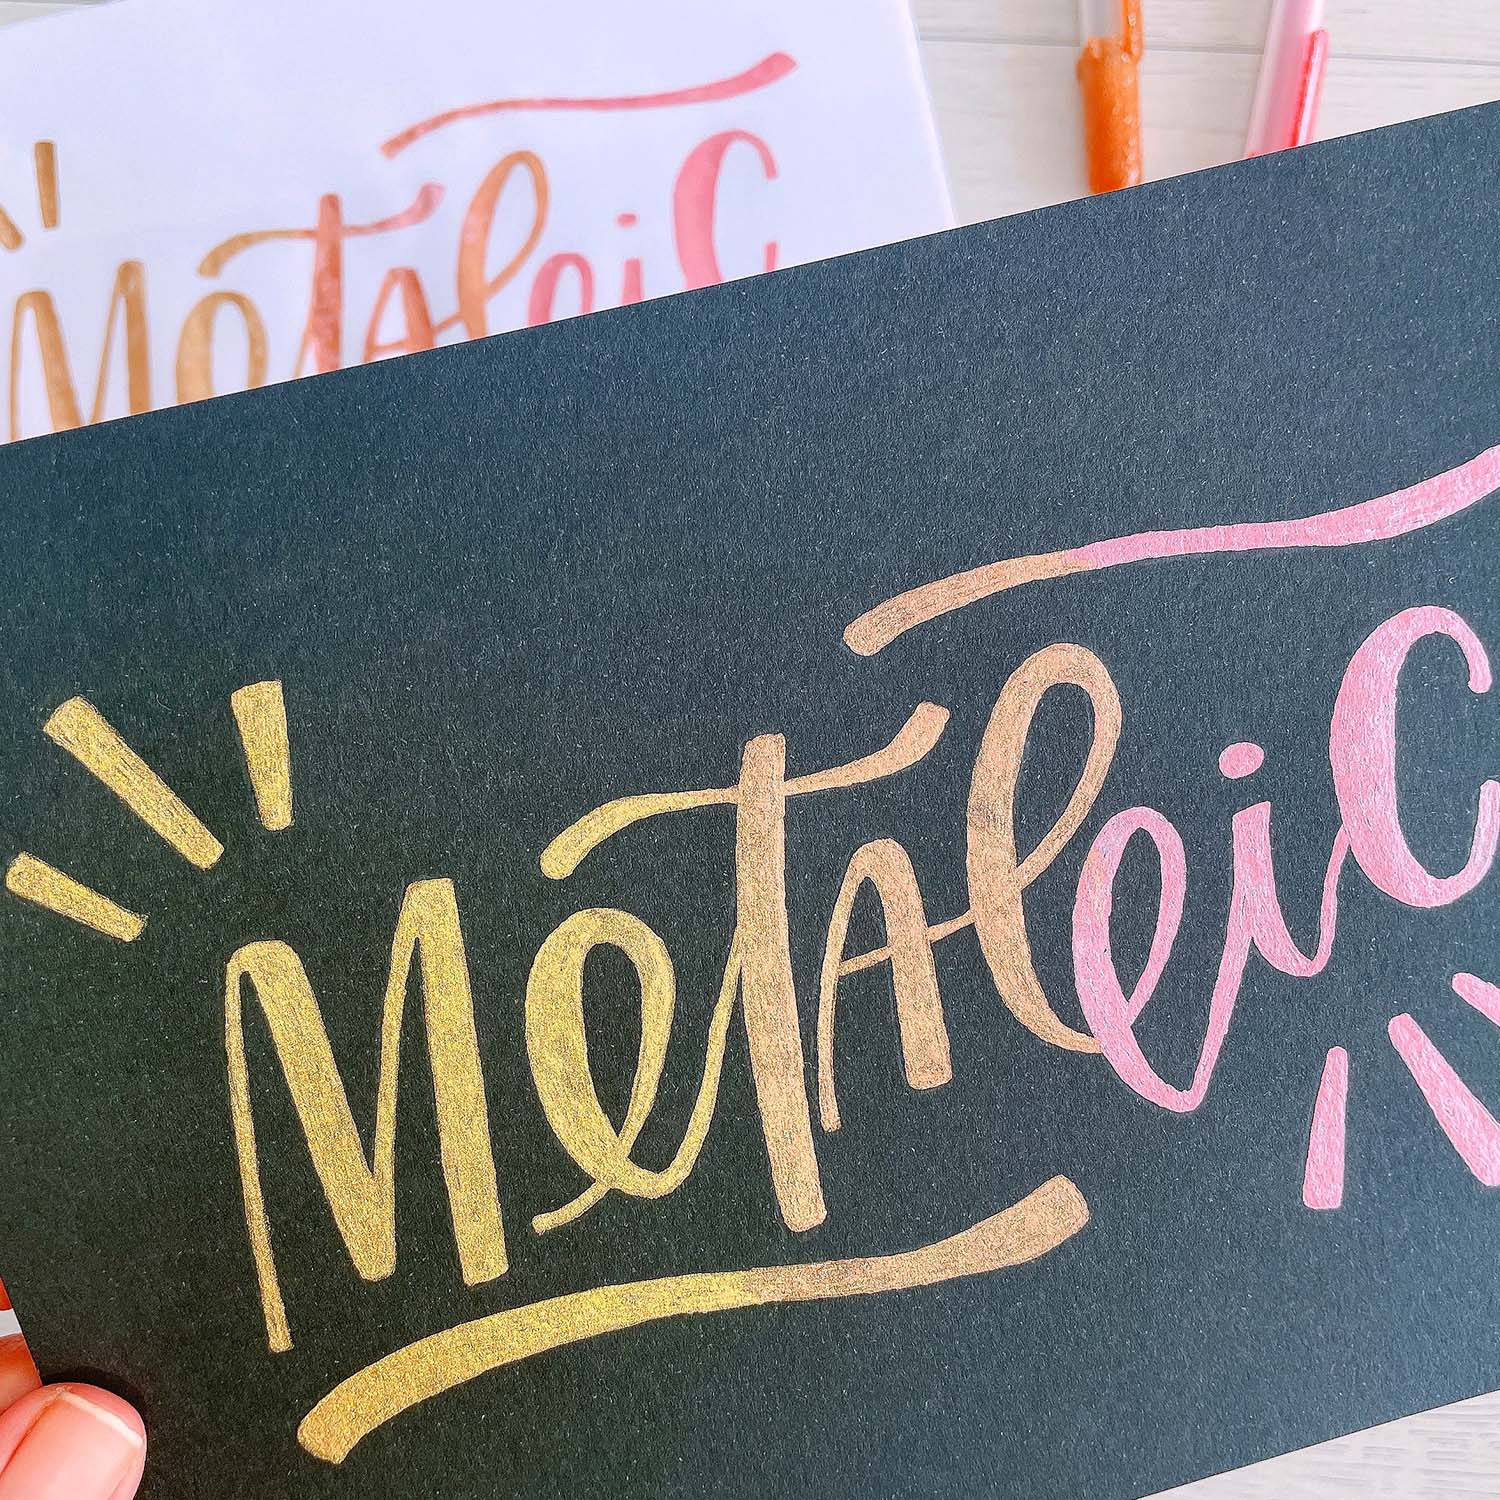 MetAlliC
MetAlliC